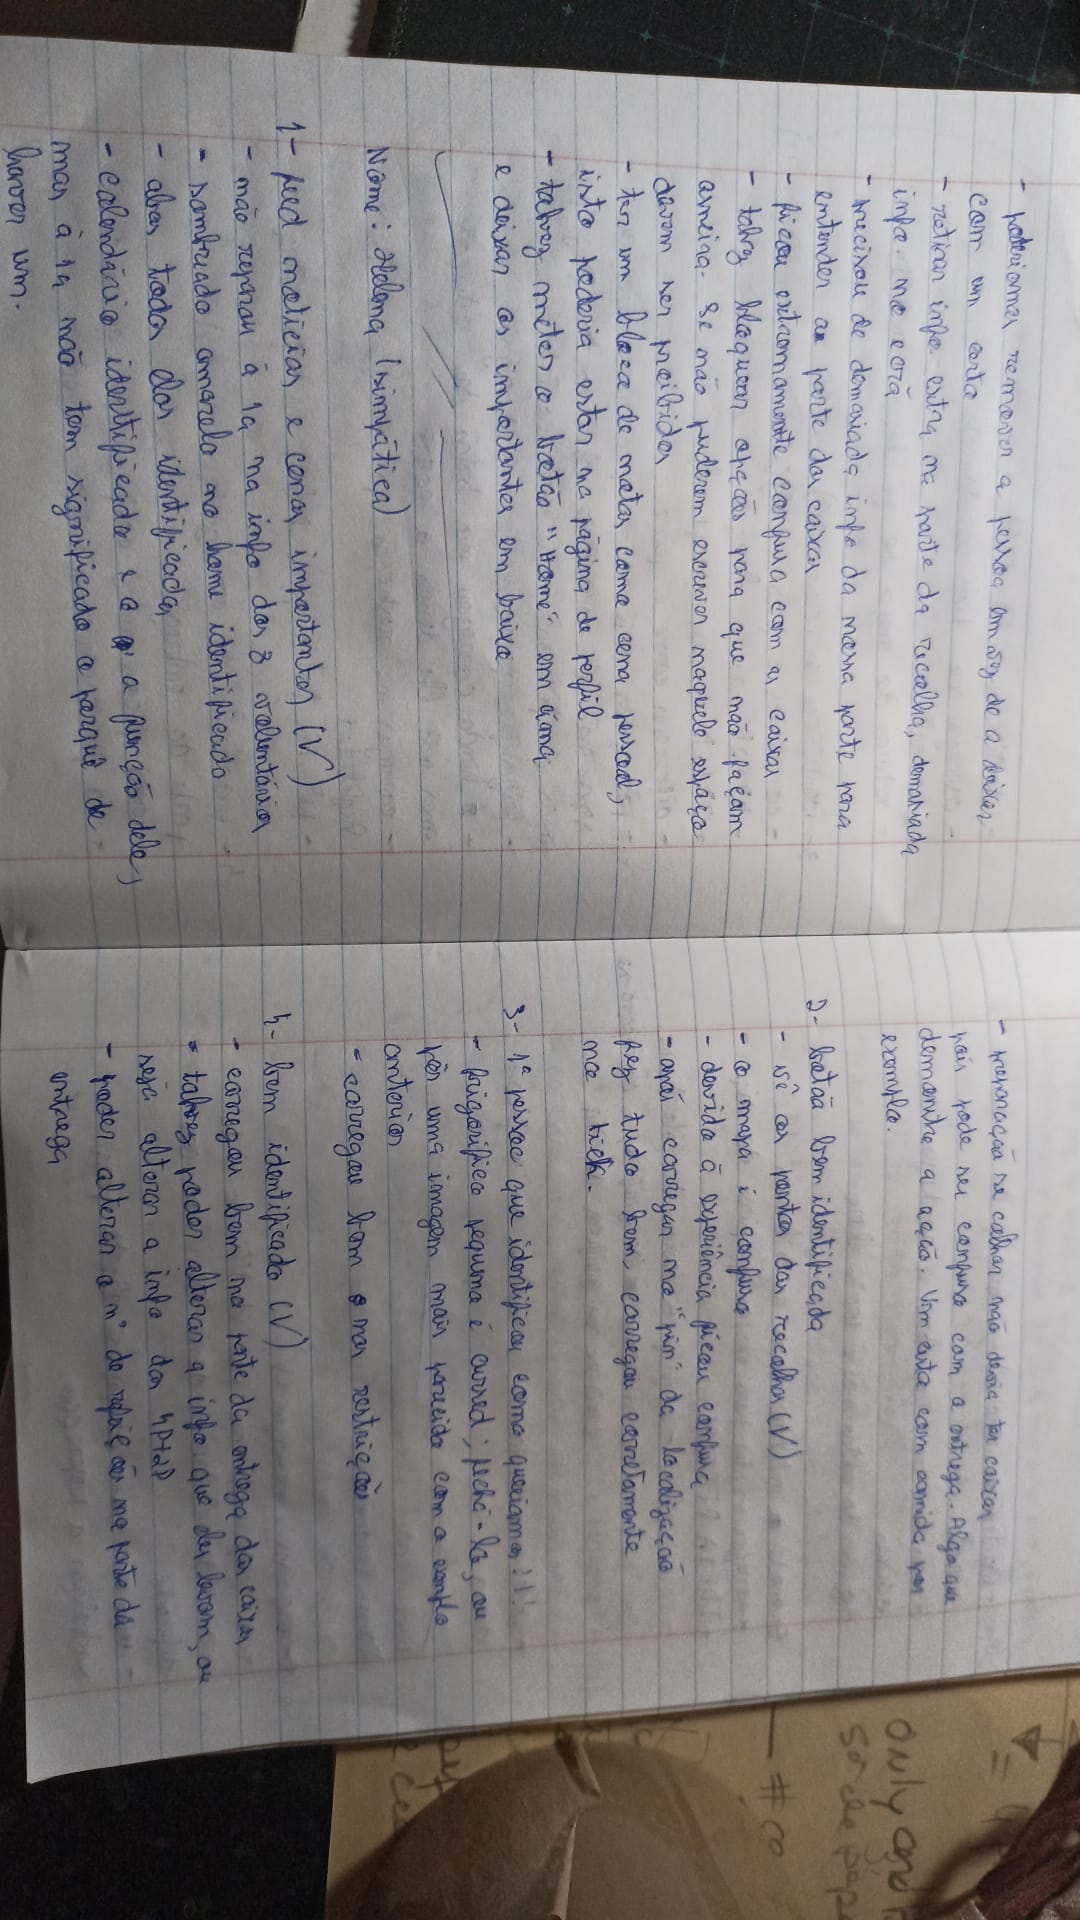 - poderíamos remover a pessoa em vez de a deixar
com um certo
- retirar info extra na parte da recolha, demasiada
info. no ecrã
- precisou de demasiada info da nossa parte para
entender a parte das caixas
- ficou extremamente confusa com as caixas
- talvez bloquear opções para que não façam
asneira. Se não puderem escrever naquele espaço
devem ser proibidos
- ter um bloco de notas como cena pessoal,
isto poderia estar na página de perfil
- talvez meter o botão "Home" em cima
e deixar os importantes em baixo
Nome: Helena (simpática)
1- feed notícias e cenas importantes (V)
- não reparou à 1a na info dos 3 voluntários
- sombreado amarelo no home identificado
- abas todas elas identificadas
- calendário identificado e a função dele,
mas à 1a não tem significado o porquê de
haver um.
- preparação se calhar não devia ter caixas
pois pode ser confuso com a entrega. Algo que
demonstre a ação. Um cesto com comida por
exemplo.
2- botão bem identificado
- vê os pontos das recolhas (V)
- o mapa é confuso
- devido à experiência ficou confusa
- após carregar no "pin" da localização
fez tudo bem, carregou corretamente
no tick.
3- 1ª pessoa que identificou como queríamos!!!
- frigorífico pequeno é awkward; fechá-lo, ou
pôr uma imagem mais parecida com o exemplo
anterior
- carregou bem nas restrições
4- bem identificado (V)
- carregou bem na parte da entrega das caixas
- talvez poder alterar a info que eles levam, ou
seja alterar a info dos 4P+2D
- poder alterar o nº de refeições na parte da
entrega
only and